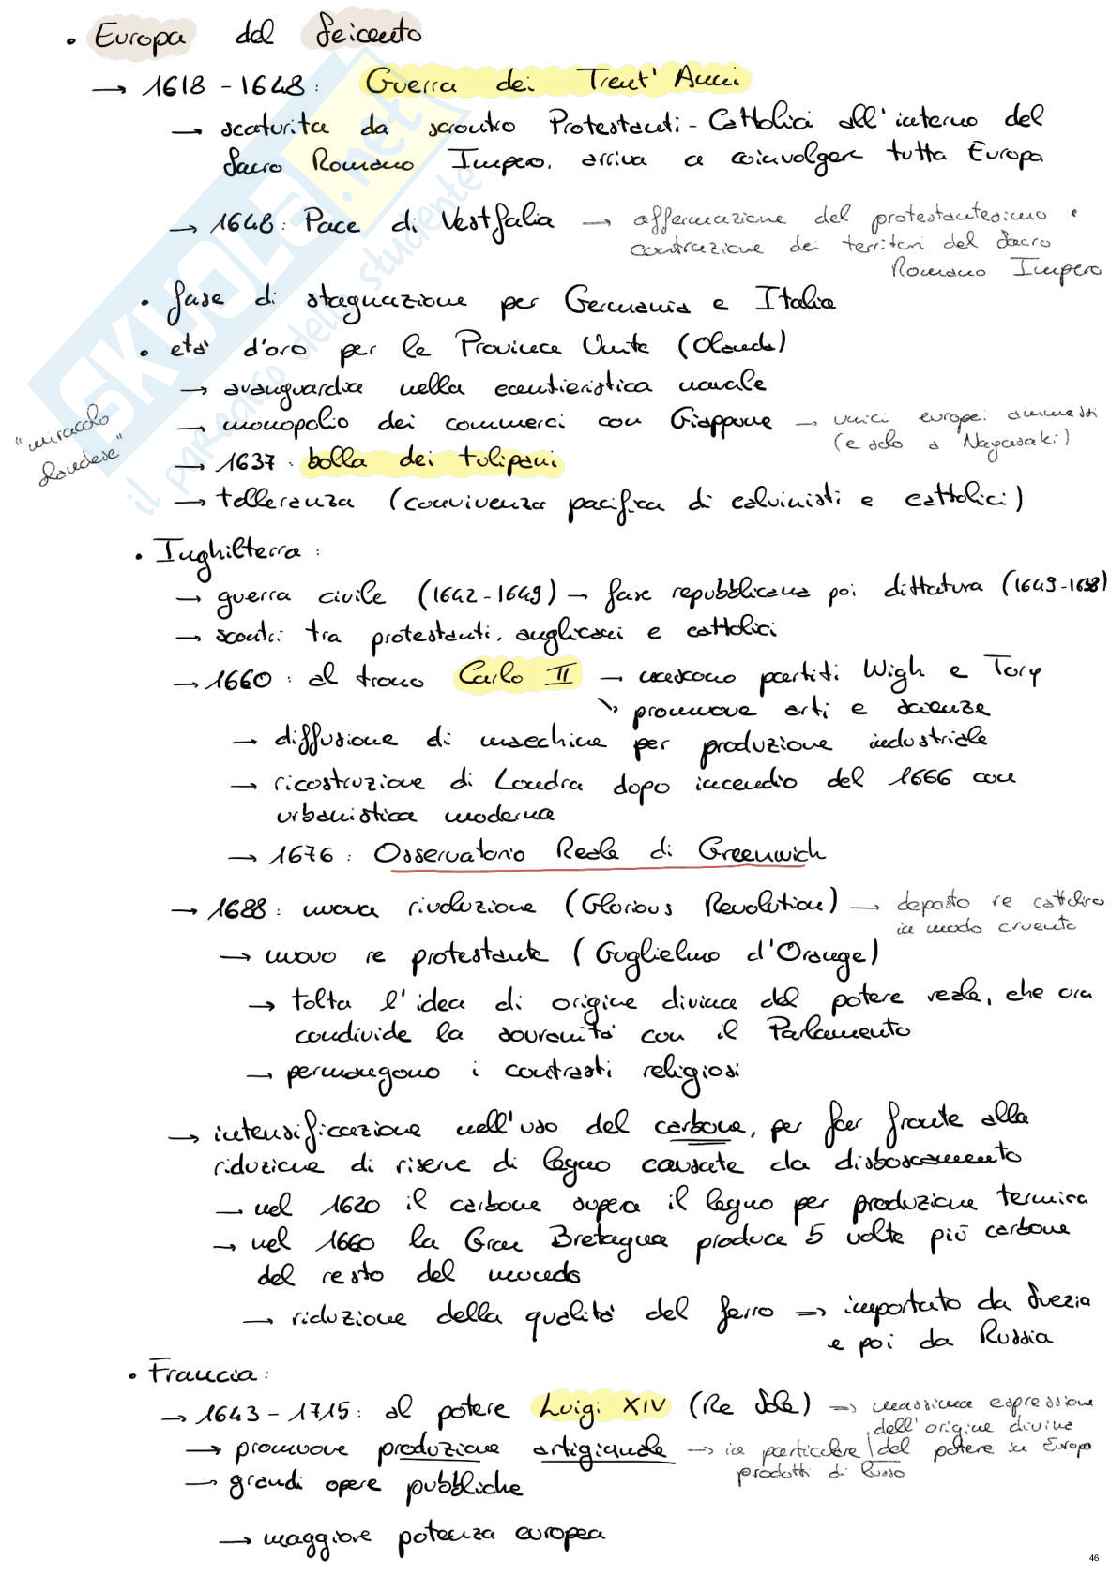 • Europa del Seicento
→ 1618 - 1648: Guerra dei Trent' Anni
→ scaturita da scontro Protestanti - Cattolici all'interno del
Sacro Romano Impero, arriva a coinvolgere tutta Europa
→ 1648: Pace di Vestfalia → affermazione del protestantesimo e
contrazione dei territori del Sacro
Romano Impero
• fase di stagnazione per Germania e Italia
• età d'oro per le Province Unite (Olanda)
→ avanguardia nella cantieristica navale
"miracolo
olandese"
→ monopolio dei commerci con Giappone → unici europei ammessi
(e solo a Nagasaki)
→ 1637: bolla dei tulipani
→ tolleranza (convivenza pacifica di calvinisti e cattolici)
• Inghilterra:
→ guerra civile (1642-1649) → fase repubblicana poi dittatura (1649-1658)
→ scontri tra protestanti, anglicani e cattolici
→ 1660: al trono Carlo II → nascono partiti Wigh e Tory
↘ promuove arti e scienze
→ diffusione di macchine per produzione industriale
→ ricostruzione di Londra dopo incendio del 1666 con
urbanistica moderna
→ 1676: Osservatorio Reale di Greenwich
→ 1688: nuova rivoluzione (Glorious Revolution) → deposto re cattolico
in modo cruento
→ nuovo re protestante (Guglielmo d'Orange)
→ tolta l'idea di origine divina del potere reale, che ora
condivide la sovranità con il Parlamento
→ permangono i contrasti religiosi
→ intensificazione nell'uso del carbone, per far fronte alla
riduzione di riserve di legno causate da disboscamento
→ nel 1620 il carbone supera il legno per produzione termica
→ nel 1660 la Gran Bretagna produce 5 volte più carbone
del resto del mondo
→ riduzione della qualità del ferro → importato da Svezia
e poi da Russia
• Francia:
→ 1643 - 1715: al potere Luigi XIV (Re Sole) → massima espressione
dell'origine divina
del potere in Europa
→ promuove produzione artigianale → in particolare
prodotti di lusso
→ grandi opere pubbliche
→ maggiore potenza europea
46
SKUOLA.net
il paradiso dello studente